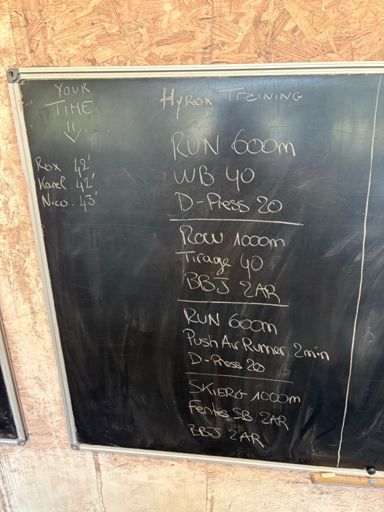 YOUR
TIME
Rox 42'
Karel: 42'
Nico: 43'
HYROX TRZINING
RUN 600m
WB 40
D-Press 20
ROW 1000m
Tirage 40
BBJ 2AR
RUN 600m
Push Air Runner 2min
D-Press 20
SKIERG 1000m
Fentes SB 2AR
BBJ 2AR